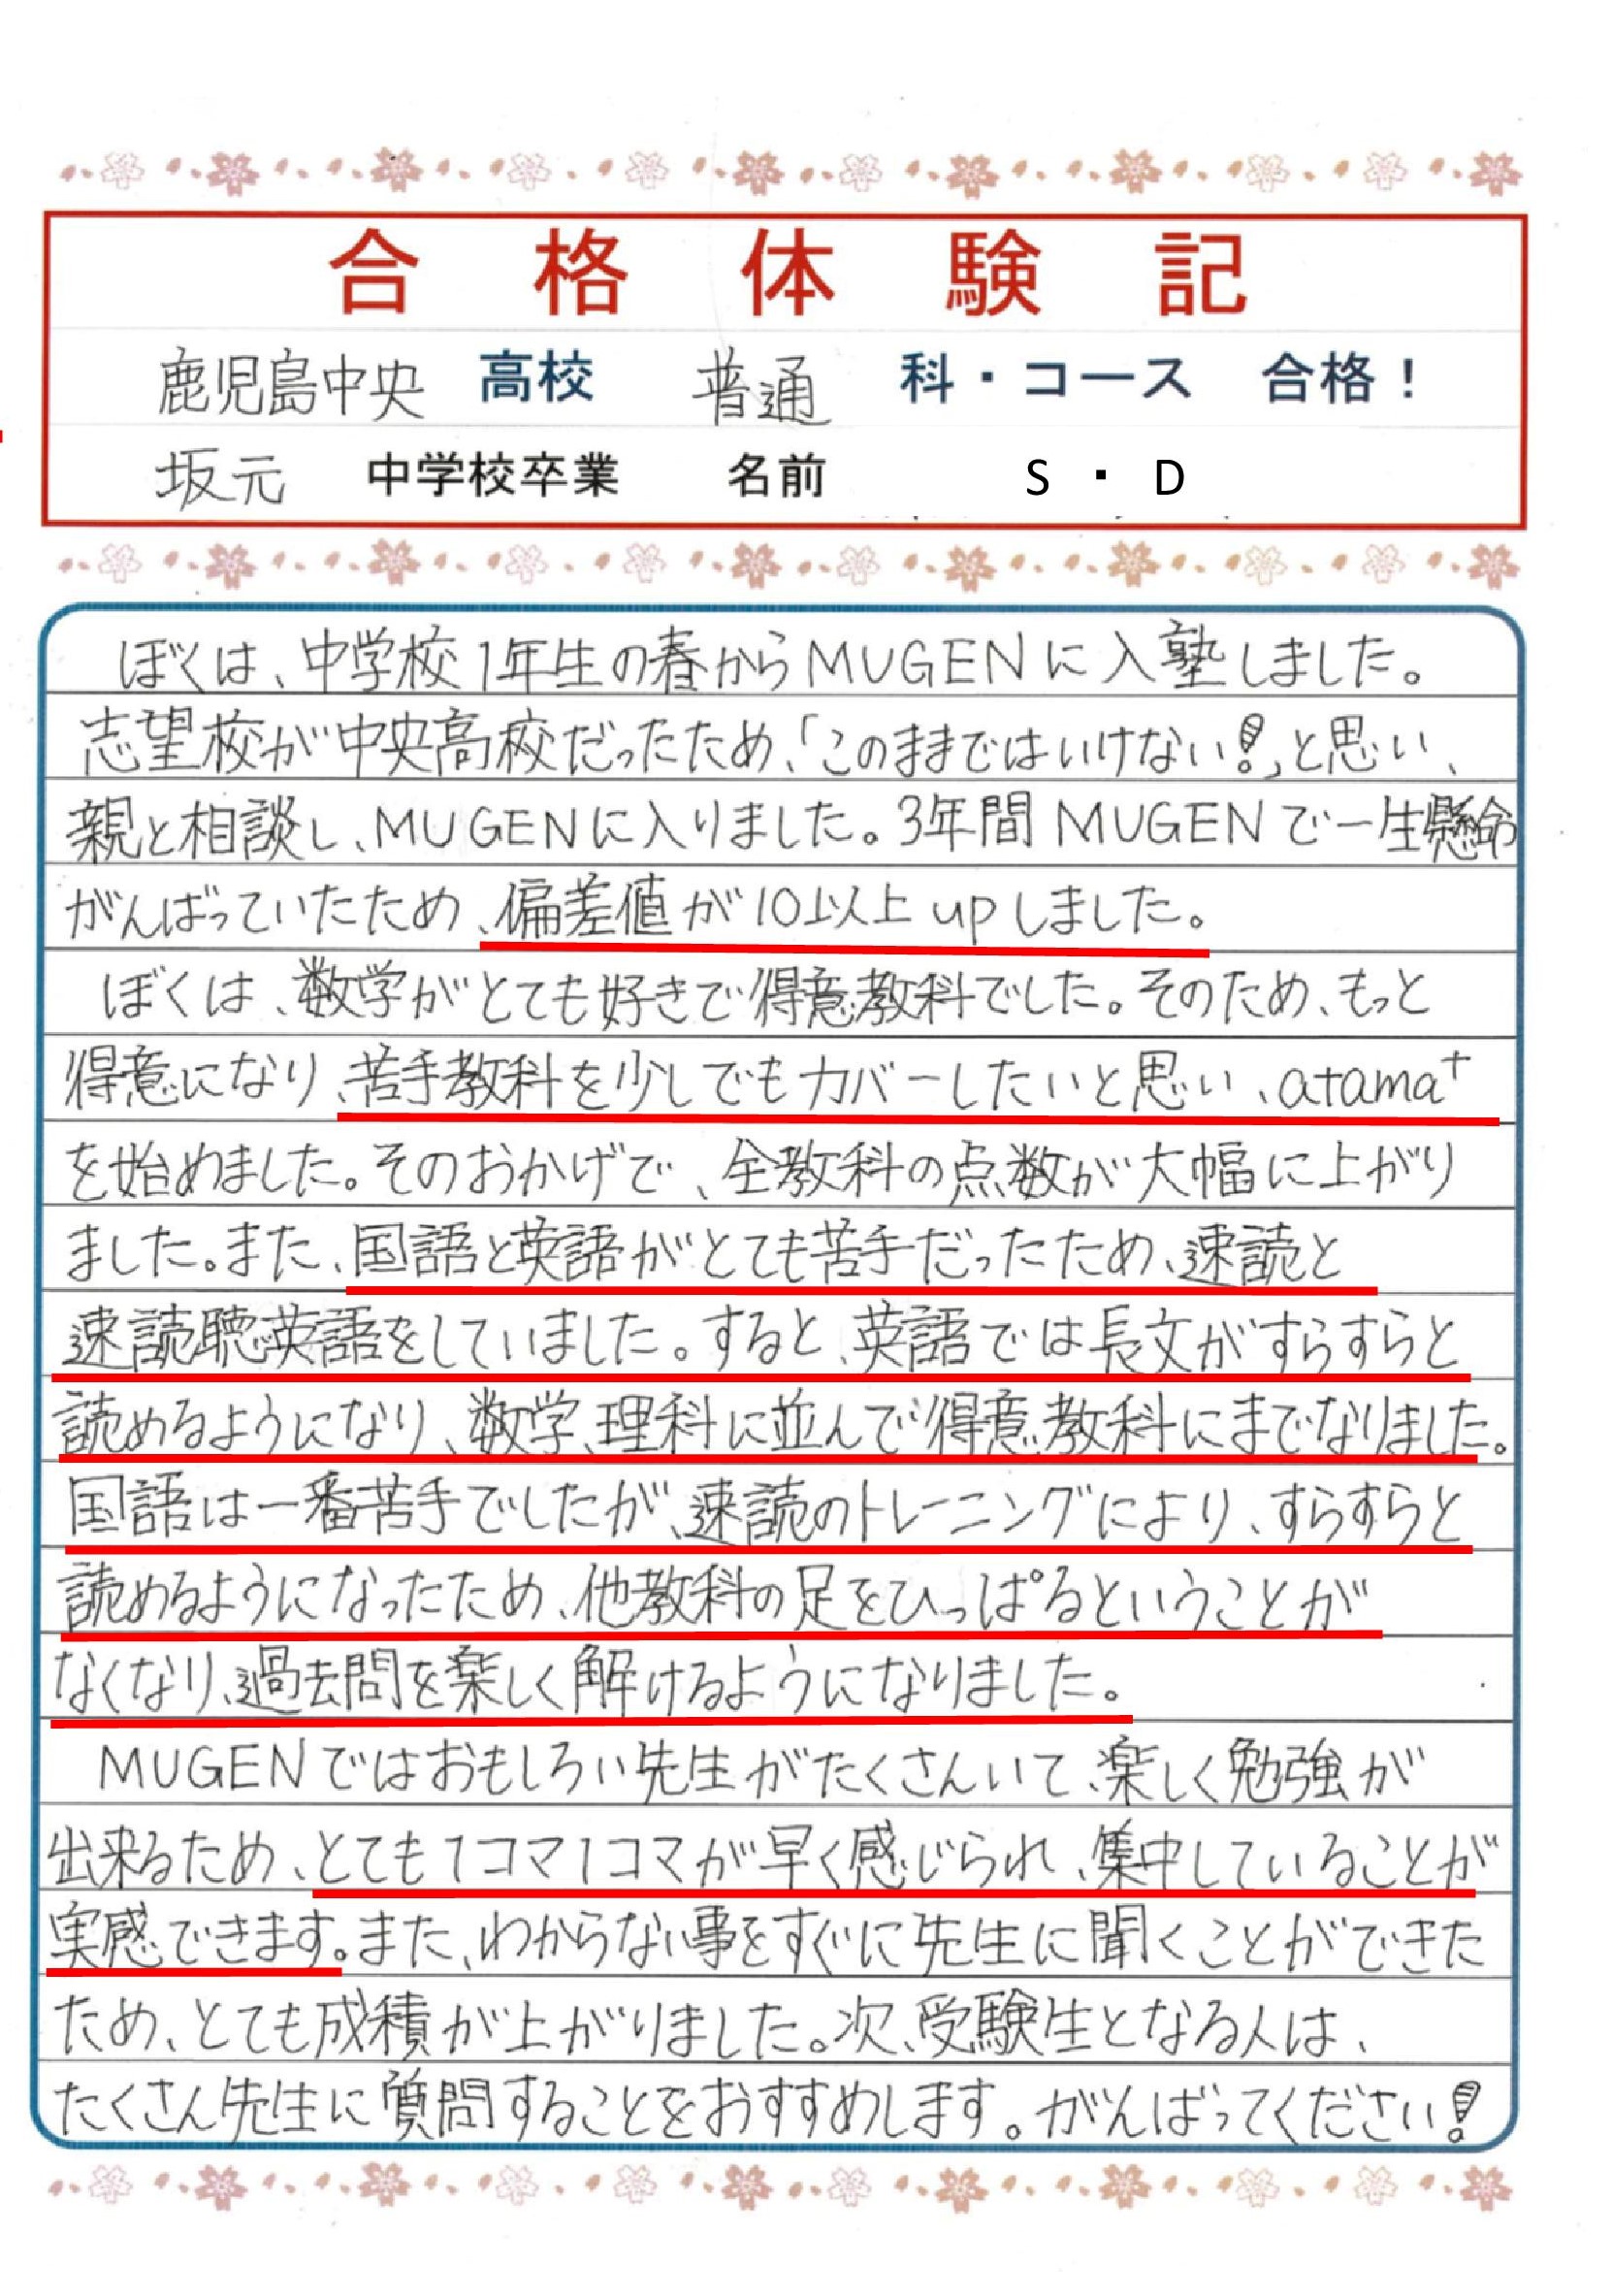 合格体験記
鹿児島中央 高校 普通 科・コース 合格！
坂元 中学校卒業 名前 S ・ D
ぼくは、中学校1年生の春からMUGENに入塾しました。
志望校が中央高校だったため、「このままではいけない!」と思い、
親と相談し、MUGENに入りました。3年間MUGENで一生懸命
がんばっていたため、偏差値が10以上upしました。
ぼくは、数学がとても好きで得意教科でした。そのため、もっと
得意になり、苦手教科を少しでもカバーしたいと思い、atama⁺
を始めました。そのおかげで、全教科の点数が大幅に上がり
ました。また、国語と英語がとても苦手だったため、速読と
速読聴英語をしていました。すると、英語では長文がすらすらと
読めるようになり、数学、理科に並んで得意教科にまでなりました。
国語は一番苦手でしたが、速読のトレーニングにより、すらすらと
読めるようになったため、他教科の足をひっぱるということが
なくなり、過去問を楽しく解けるようになりました。
MUGENではおもしろい先生がたくさんいて、楽しく勉強が
出来るため、とても1コマ1コマが早く感じられ、集中していることが
実感できます。また、わからない事をすぐに先生に聞くことができた
ため、とても成積が上がりました。次、受験生となる人は、
たくさん先生に質問することをおすすめします。がんばってください!